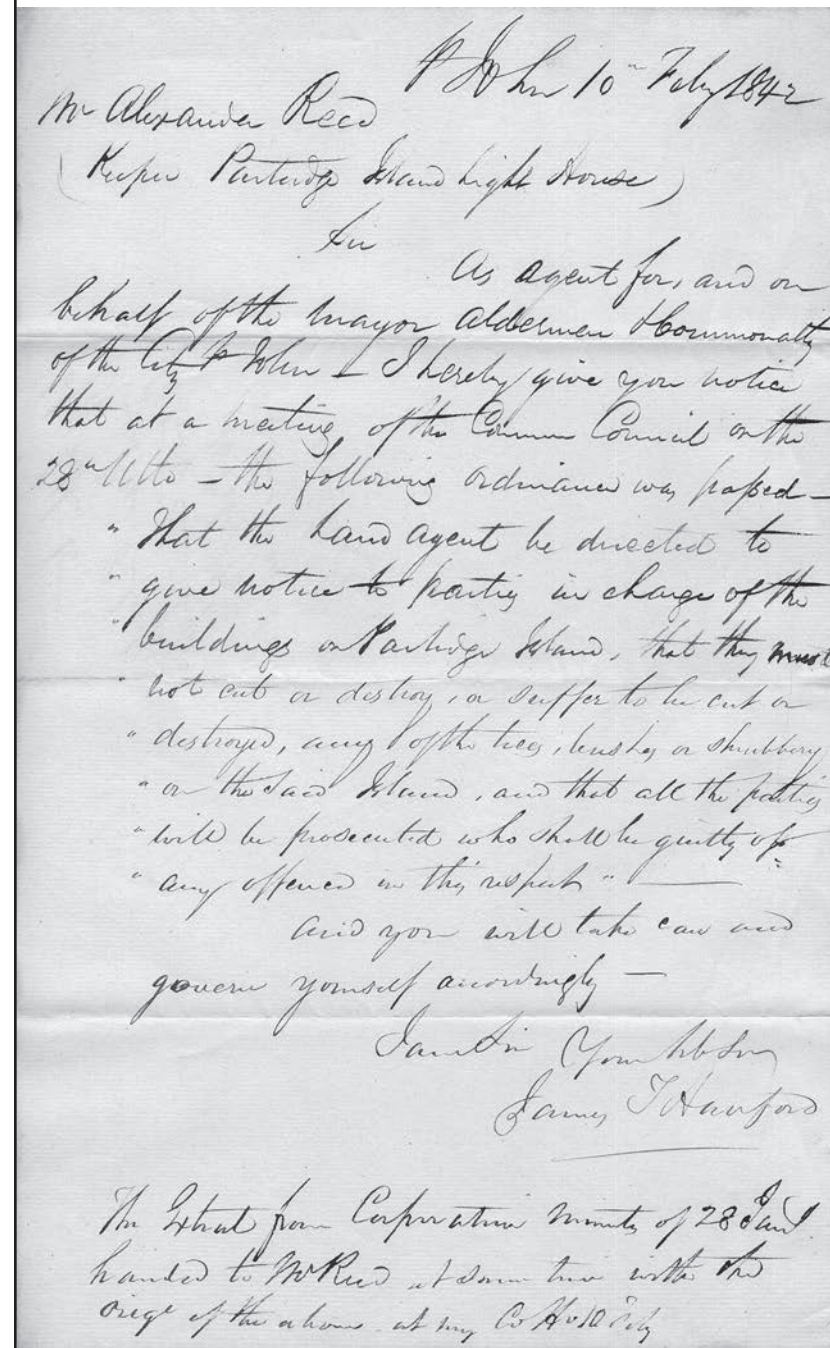 St John 10th Feby 1842
Mr Alexander Reed
(Keeper Partridge Island Light House)
Sir
As agent for, and on
behalf of the Mayor Aldermen & Commonalty
of the City St John – I hereby give you notice
that at a meeting of the Common Council on the
28th Ulto – the following ordinance was passed –
" That the Land agent be directed to
" give notice to parties in charge of the
" buildings on Partridge Island, that they must
" not cut or destroy, or suffer to be cut or
" destroyed, any of the trees, bushes or shrubbery
" on the said Island, and that all the parties
" will be prosecuted who shall be guilty of
" any offence in this respect " –
and you will take care and
govern yourself accordingly –
I am Sir Your Obt Sert
James T Hanford
The Extract from Corporation minutes of 28 Jany
handed to Mr Reed at same time with the
origl of the above at my 10 Feby